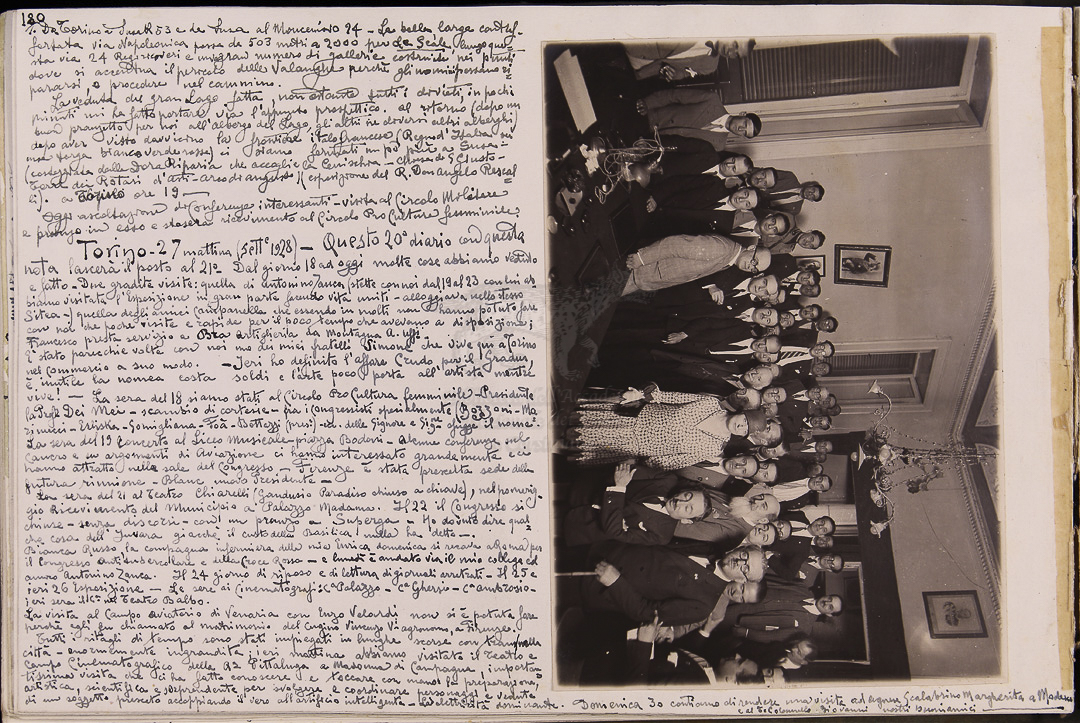 180
da Torino a Susa K 53 e da Susa al Moncenisio 24 - La bella larga
via Napoleonica passa da 503 metri a 2000 per Le Scale lungo
sta via 24 Regi ricoveri e un gran numero di gallerie costruite nei punti
dove si accentua il pericolo delle Valanghe perchè gli uomini possano ri
pararsi o procedere nel cammino.
La veduta del gran Lago fatta, non ostante tutti i divieti, in pochi
minuti mi ha fatto portare via l'appunto prospettico. al ritorno (dopo un
buon pranzetto) per noi all'albergo del Lago, gli altri in diversi altri alberghi)
dopo aver visto davvicino la frontiera italo francese (Regno d'Italia nei
una targa bianco verde rossa) siamo fermati un pò più a Susa
(costeggiata dalla Dora Riparia che accoglie la Cenischia - chiesa di S Giusto -
Torre dei Rotari d'asti - arco di augusto) (esposizione del R. Don angelo Rescal
li). a Torino ore 19 —
Oggi ascoltazione di Conferenze interessanti - visita al Circolo Militare
e pranzo in esso e stasera ricevimento al Circolo Pro Cultura femminile
Torino - 27 mattina (Sett.e 1928) - Questo 20° diario con questa
nota lascerà il posto al 21°. Dal giorno 18 ad oggi molte cose abbiamo veduto
e fatto - Due gradite visite: quella di antonino Zanca (stette con noi dal 19 al 23 con lui ab
biamo visitato l'Esposizione in gran parte facendo vita uniti - alloggiava nello stesso
Sitea -) quello degli amici Campanella che essendo in molti non hanno potuto fare
con noi che poche visite e rapide per il poco tempo che avevano a disposizione;
Francesco presta servizio a Bra artiglieria da Montagna A. uff.
E' stato parecchie volte con noi uno dei miei fratelli Simone che vive quì a Torino
nel Commercio a suo modo. - Jeri ho definito l'affare Crudo per il Gradus
è inutile la nomea costa soldi e l'arte poco porta all'artista mentre
vive! — La sera del 18 siamo stati al Circolo Pro Cultura femminile - Presidente
la Prof. Dei Mei - scambio di cortesie - fra i Congressisti specialmente (Bozzoni - Ma
rinucci - - Gomigliana - Foà - Bottazzi (presi) - ed. delle Signore e Sig.ne sfugge il nome.
La sera del 19 Concerto al Liceo Musicale piazza Bodoni - alcune conferenze sul
Cancro e su argomenti di Aviazione ci hanno interessato grandemente e ci
hanno attratto nelle sale del Congresso - Firenze è stata prescelta sede della
futura riunione - Blanc nuovo Presidente -
La sera del 21 al Teatro Chiarelli (Gandusio Paradiso chiuso a chiave), nel pomerig-
gio Ricevimento del Municipio a Palazzo Madama. Il 22 il Congresso si
chiuse - senza discorsi - con un pranzo a Superga - Ho dovuto dire qual
che cosa dell'Juvara giacchè il custode della Basilica nulla ha detto. —
Bianca Russo, la compagna infermiera della mia Enrica domenica si recava a Roma per
il Congresso Antitubercollare e della Croce Rossa - e lunedì è andato via il mio collega ed
amico Antonino Zanca. Il 24 giorno di riposo e di lettura di giornali arretrati - Il 25 e
ieri 26 Esposizione - Le sere ai Cinematografi C° Palazzo - C° Ghersi - C° ambrosio -
ieri sera il C° in Teatro Balbo.
La visita al Campo aviatorio di Venaria con Enzo Velardi non si è potuta fare
perchè egli fu chiamato al matrimonio del Cugino Vincenzo a Firenze!
Tutti i ritagli di tempo sono stati impiegati in lunghe scorse con tram nella
città - enormemente ingrandita; ieri mattina abbiamo visitato il Teatro e
Campo Cinematografico della Pittaluga a Madonna di Campagna, importan-
tissima visita che ci ha fatto conoscere e toccare con mano la preparazione
artistica, scientifica e per svolgere e coordinare personaggi e vedute
di un soggetto, prescelto accoppiando il vero all'artificio intelligente - La elettricità dominante. - Domenica 30 contiamo di rendere una visita ad Scalabrino Margherita a
e al T. Colonnello Giovanni nostri